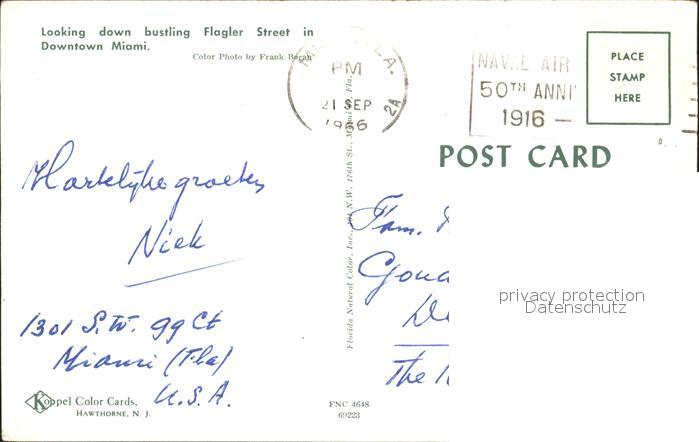 Looking down bustling Flagler Street in
Downtown Miami.
Color Photo by Frank Boran
PM
21 SEP
1966
2A
NAVAL AIR
50TH ANNI
1916 —
PLACE
STAMP
HERE
POST CARD
Hartelijke groeten
Niek
1301 S.W. 99 Ct
Miami (Fla)
U.S.A.
Florida Natural Color, Inc., N.W. 176th St., Miami, Fla.
Fam.
Goud
The
privacy protection
Datenschutz
Koppel Color Cards.
HAWTHORNE, N. J.
FNC 4648
69223